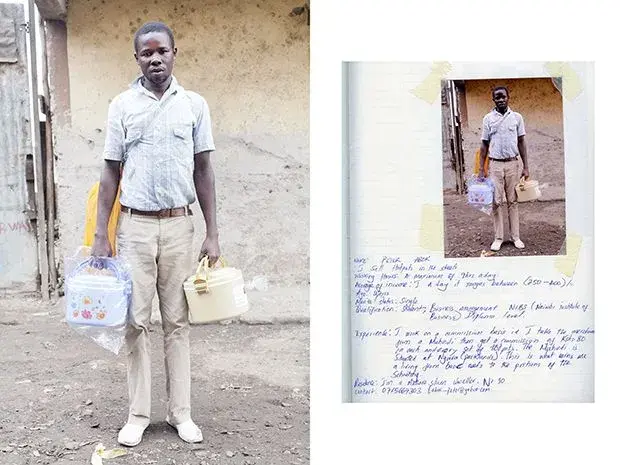 NAME: PETER ABOK
I sell Hotpots in the streets
Working Hours: A maximum of 9hrs a day
Average of income: I a day it ranges between (250-400)/-
Age:
Marital status: Single
Qualification: Studying Business management NIBS (Nairobi Institute of
Business) Diploma level.
Experience: I work on a commission basis i.e I take the merchandise
from a Muhindi then get a commission of Kshs 50
on each and every set of Hotpots. The Muhindi is
situated at Ngara (parklands). This is what earns me
a living from basic needs to the portions of the
Residence: I'm a Mathare slum dweller. No 10
contact: 0715664303